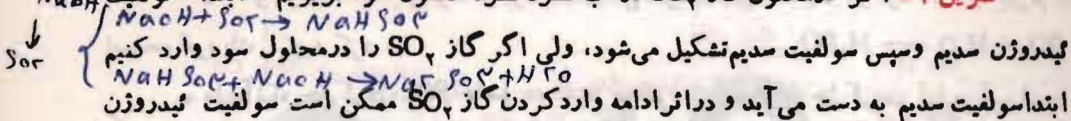 NaOH + SO۲ → NaHSO۳
ئیدروژن سدیم وسپس سولفیت سدیم تشکیل می‌شود، ولی اگر گاز SO۲ را درمحلول سود وارد کنیم
SO۲
NaHSO۳ + NaOH → Na۲SO۳ + H۲O
ابتداسولفیت سدیم به دست می‌آید و دراثر ادامه واردکردن گاز SO۲ ممکن است سولفیت ئیدروژن